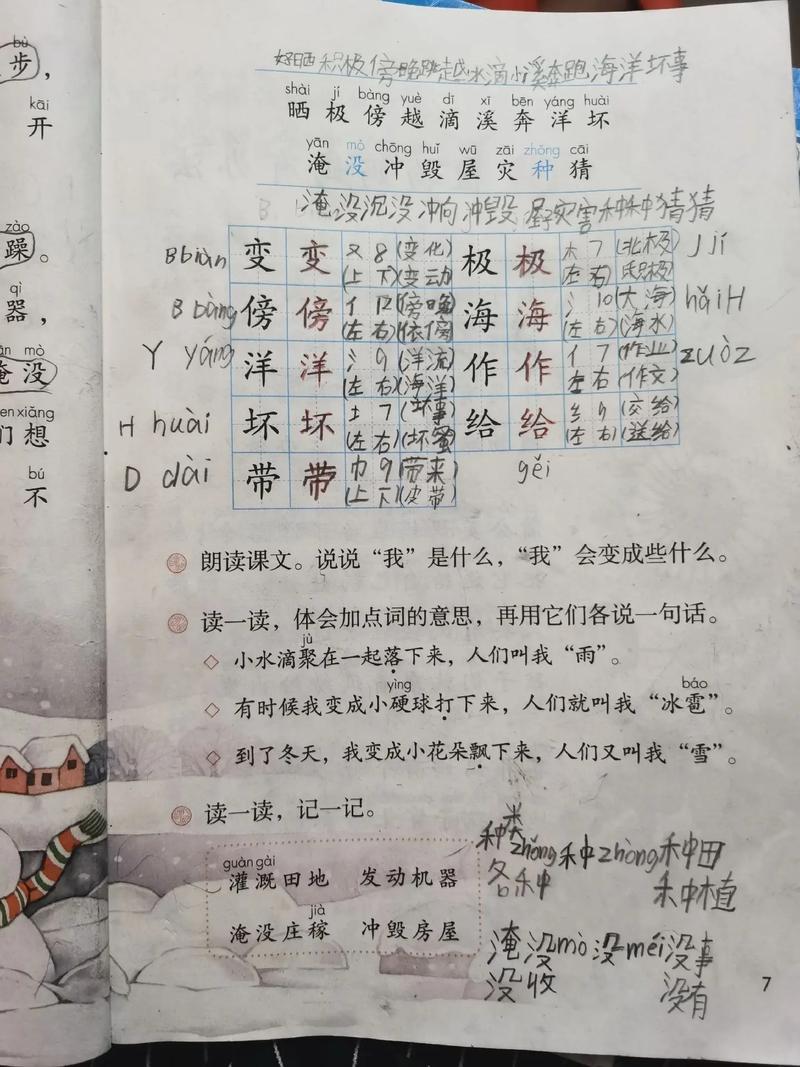 bù
步，
kāi
开
zào
躁。
qì
器，
mò
淹没
xiāng
们想
bú
不
好晒 积极 傍晚 跳越 水滴 小溪 奔跑 海洋 坏事
shài jí bàng yuè dī xī bēn yáng huài
晒 极 傍 越 滴 溪 奔 洋 坏
yān mò chōng huǐ wū zāi zhǒng cāi
淹 没 冲 毁 屋 灾 种 猜
淹没 沉没 冲向 冲毁 灾害 种种 猜猜
B biàn 变 变 又 8 (变化) 极 极 木 7 (北极) J jí
(上 下)(变动) 左 右) 积极)
B bàng 傍 傍 亻 12 (傍晚) 海 海 氵 10 (大海) hǎi H
(左 右)(依傍) (左 右)(海水)
Y yáng 洋 洋 氵 9 (洋流) 作 作 亻 7 (作业) zuò z
(左 右)(海洋) 左 右 (作文)
H huài 坏 坏 土 7 (坏事) 给 给 纟 9 (交给)
(左 右)(坏蛋) (左 右)(送给)
D dài 带 带 巾 9 (带来) gěi
(上 下)(皮带)
朗读课文。说说“我”是什么，“我”会变成些什么。
读一读，体会加点词的意思，再用它们各说一句话。
jù
◇ 小水滴聚在一起落下来，人们叫我“雨”。
yìng báo
◇ 有时候我变成小硬球打下来，人们就叫我“冰雹”。
◇ 到了冬天，我变成小花朵飘下来，人们又叫我“雪”。
读一读，记一记。
guàn gài
灌溉田地 发动机器
jià
淹没庄稼 冲毁房屋
种类 zhǒng 种 zhòng 种田
各种 种植
淹没 mò 没 méi 没事
没收 没有
7